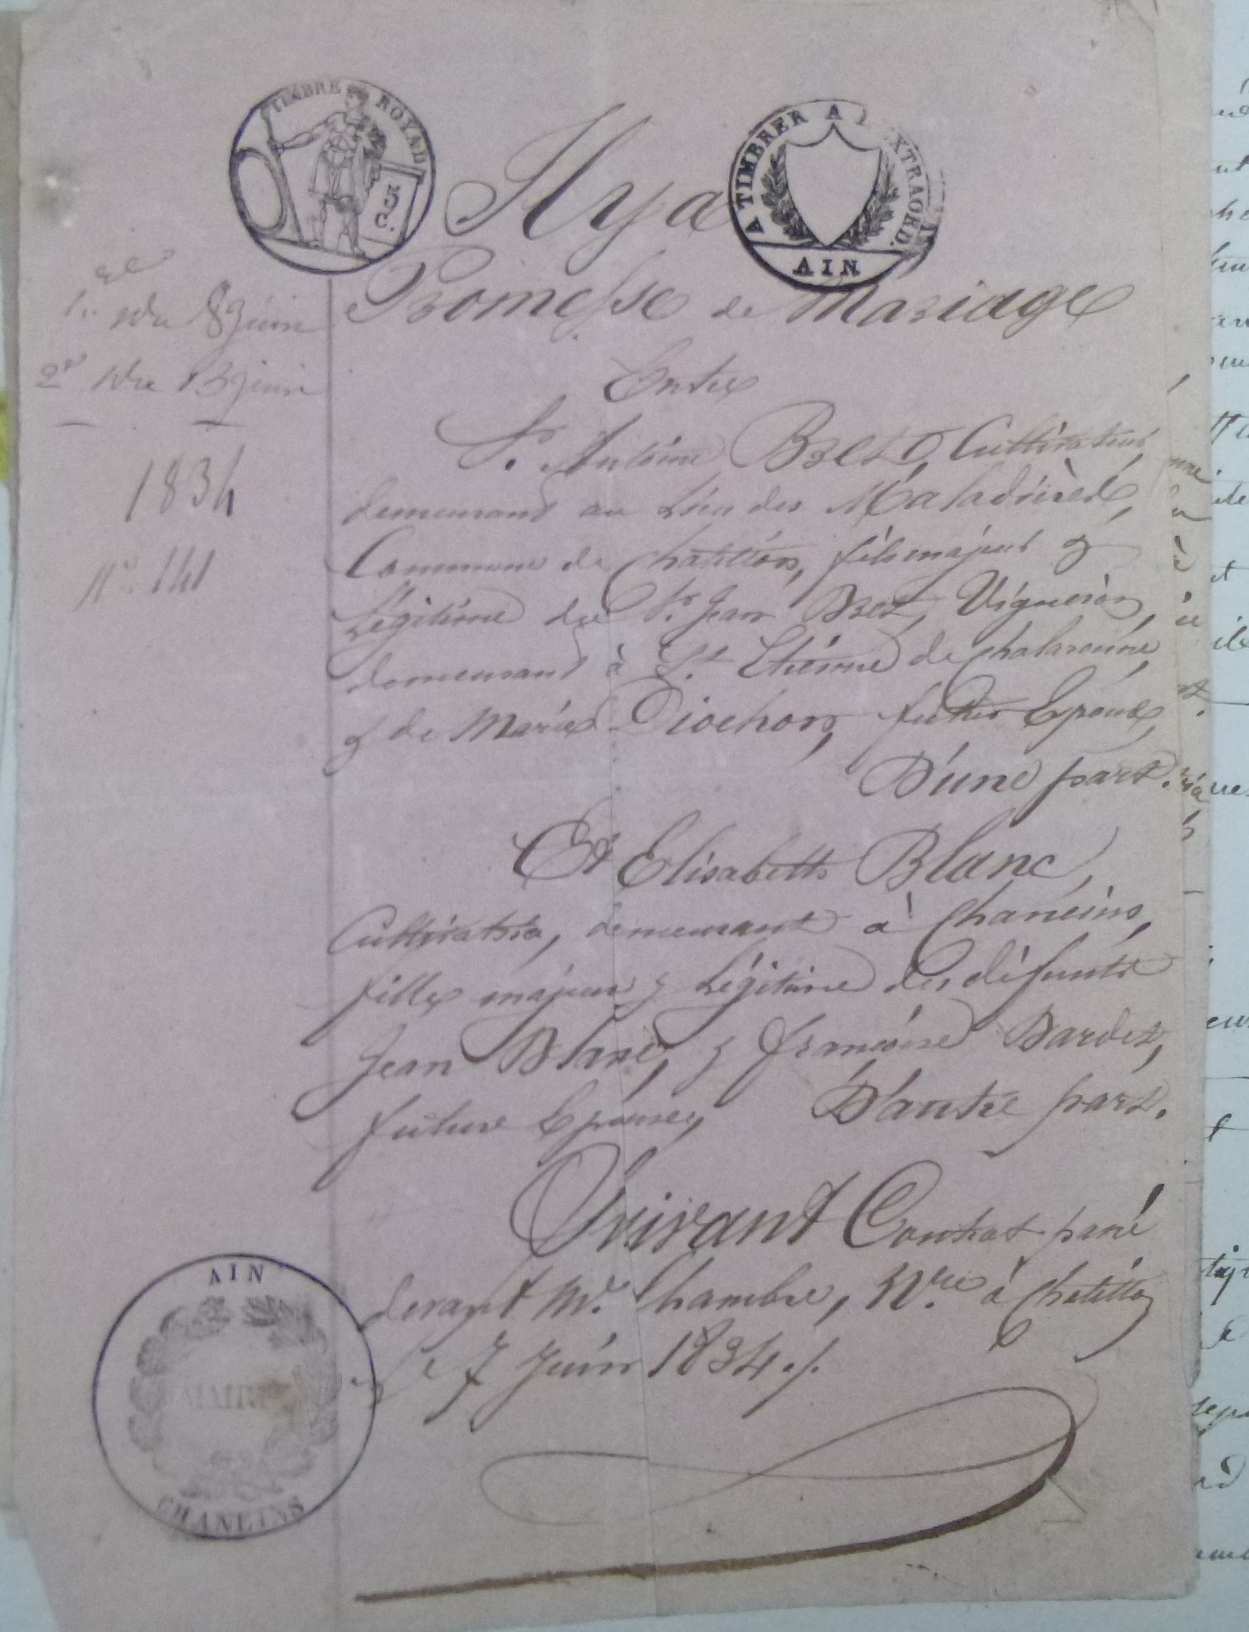 TIMBRE ROYAL
35
C.
A TIMBRER A L'EXTRAORD.
AIN
Il y a
Promesse de Mariage
Entre
Sr. Antoine Bret, Cultivateur,
demeurant au lieu des Maladières,
Commune de Chatillon, fils majeur &
Légitime de Sr. Jean Bret, Vigneron,
demeurant à St. Etienne de Chalaronne,
& de Marie Diochon, futur Epoux,
D'une part.
Et Elisabeth Blanc,
Cultivatrice, demeurant à Chaneins,
fille majeure & Légitime des défunts
Jean Blanc, & françoise Bardet,
future Epouse, D'autre part.
Suivant Contrat passé
devant Me. Chambre, Nre. à Chatillon
Le 7 Juin 1834./.
8 juin
2e juin
1834
No. 141
AIN
MAIRIE
CHANEINS